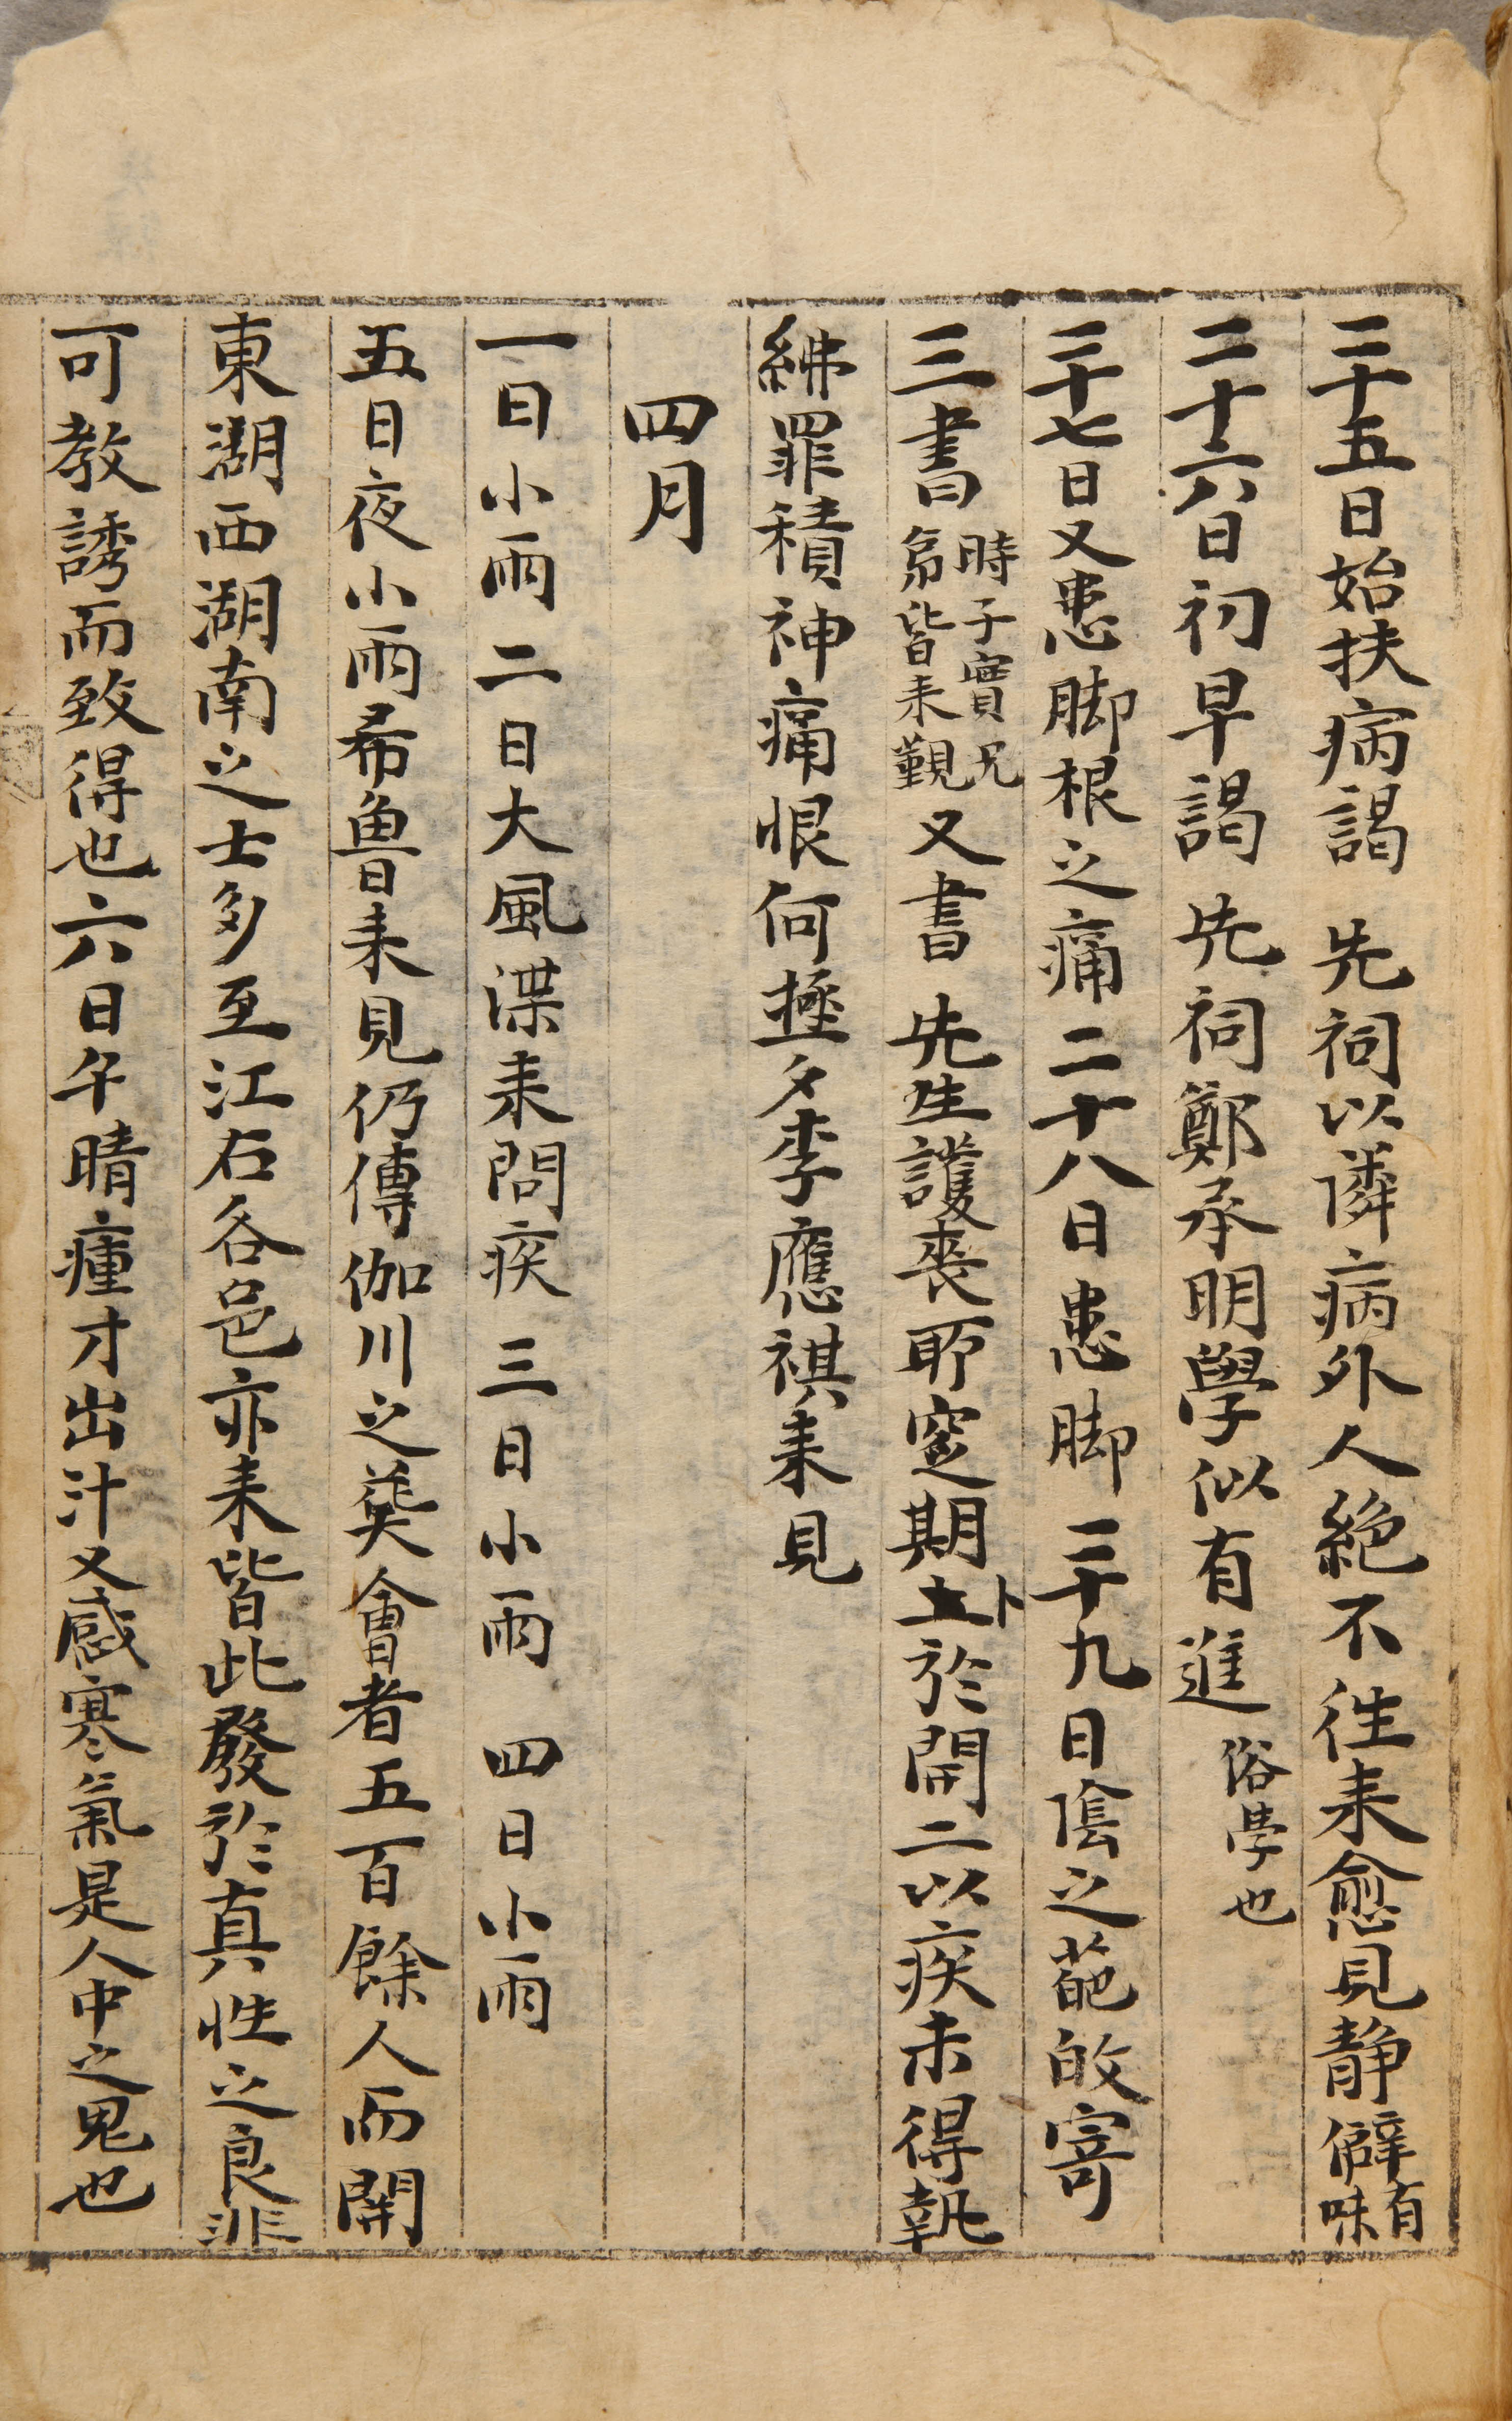 二十五日始扶病謁 先祠以憐病外人絶不往來愈見静僻有味
二十六日初早謁 先祠鄭承明學似有進俗學也
二十七日又患脚根之痛二十八日患脚 二十九日陰之葩的寄
三書時子實兄弟皆来覲又書 先生護喪耶窆期卜於開二以疾未得執
紼罪積神痛恨何極夕李應祺来見
四月
一日小雨二日大風渫来問疾 三日小雨 四日小雨
五日夜小雨希魯来見仍傳伽川之葬會者五百餘人而開
東湖西湖南之士多至江右各邑亦来皆此發於真性之良非
可教誘而致得也六日午晴瘇才出汁又感寒氣是人中之鬼也